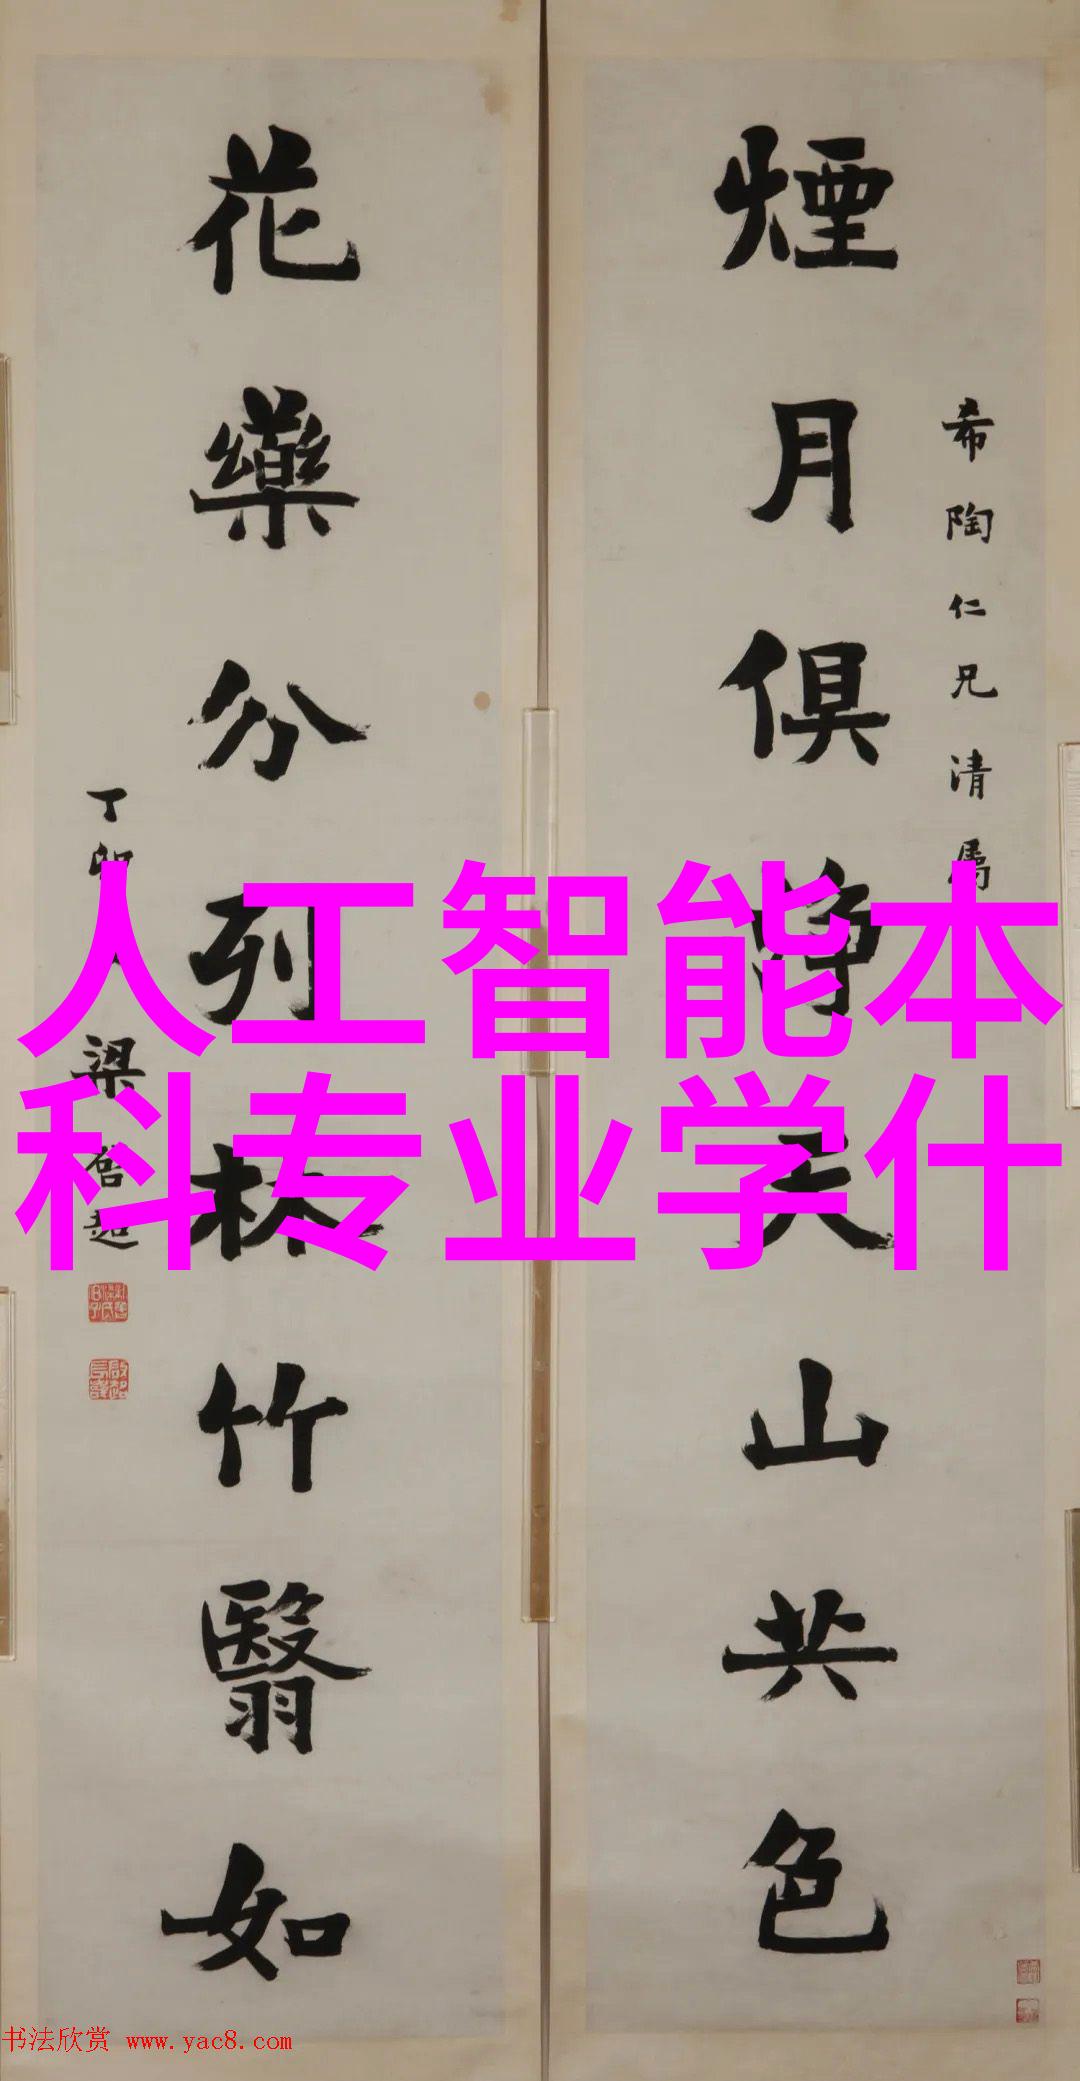 人工智能本
科专业学什
希陶仁兄清属
煙月俱淨天山共色
花藥分列林竹翳如
丁卯
梁启超
书法欣赏 www.yac8.com